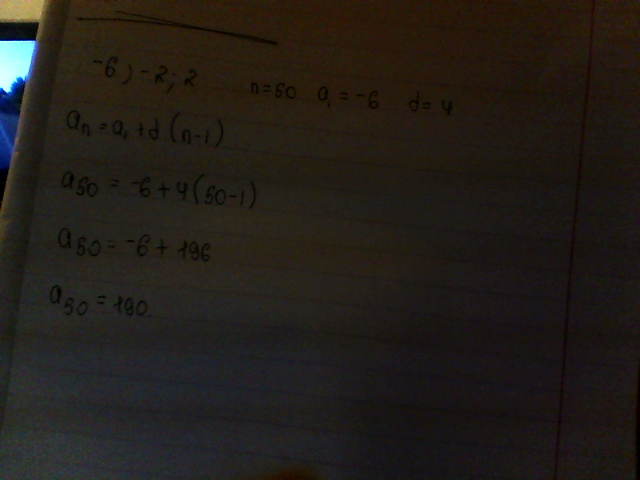 -6; -2; 2 n=50 a₁=-6 d=4
aₙ=a₁+d(n-1)
a₅₀=-6+4(50-1)
a₅₀=-6+196
a₅₀=190